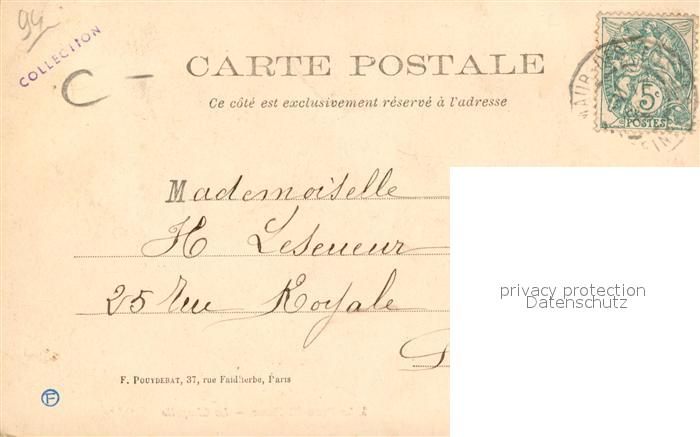 94
COLLECTION
C —
CARTE POSTALE
Ce côté est exclusivement réservé à l'adresse
5c
POSTES
Mademoiselle
H Leseueur
25 rue Royale
privacy protection
Datenschutz
F. POUYDEBAT, 37, rue Faidherbe, Paris
F